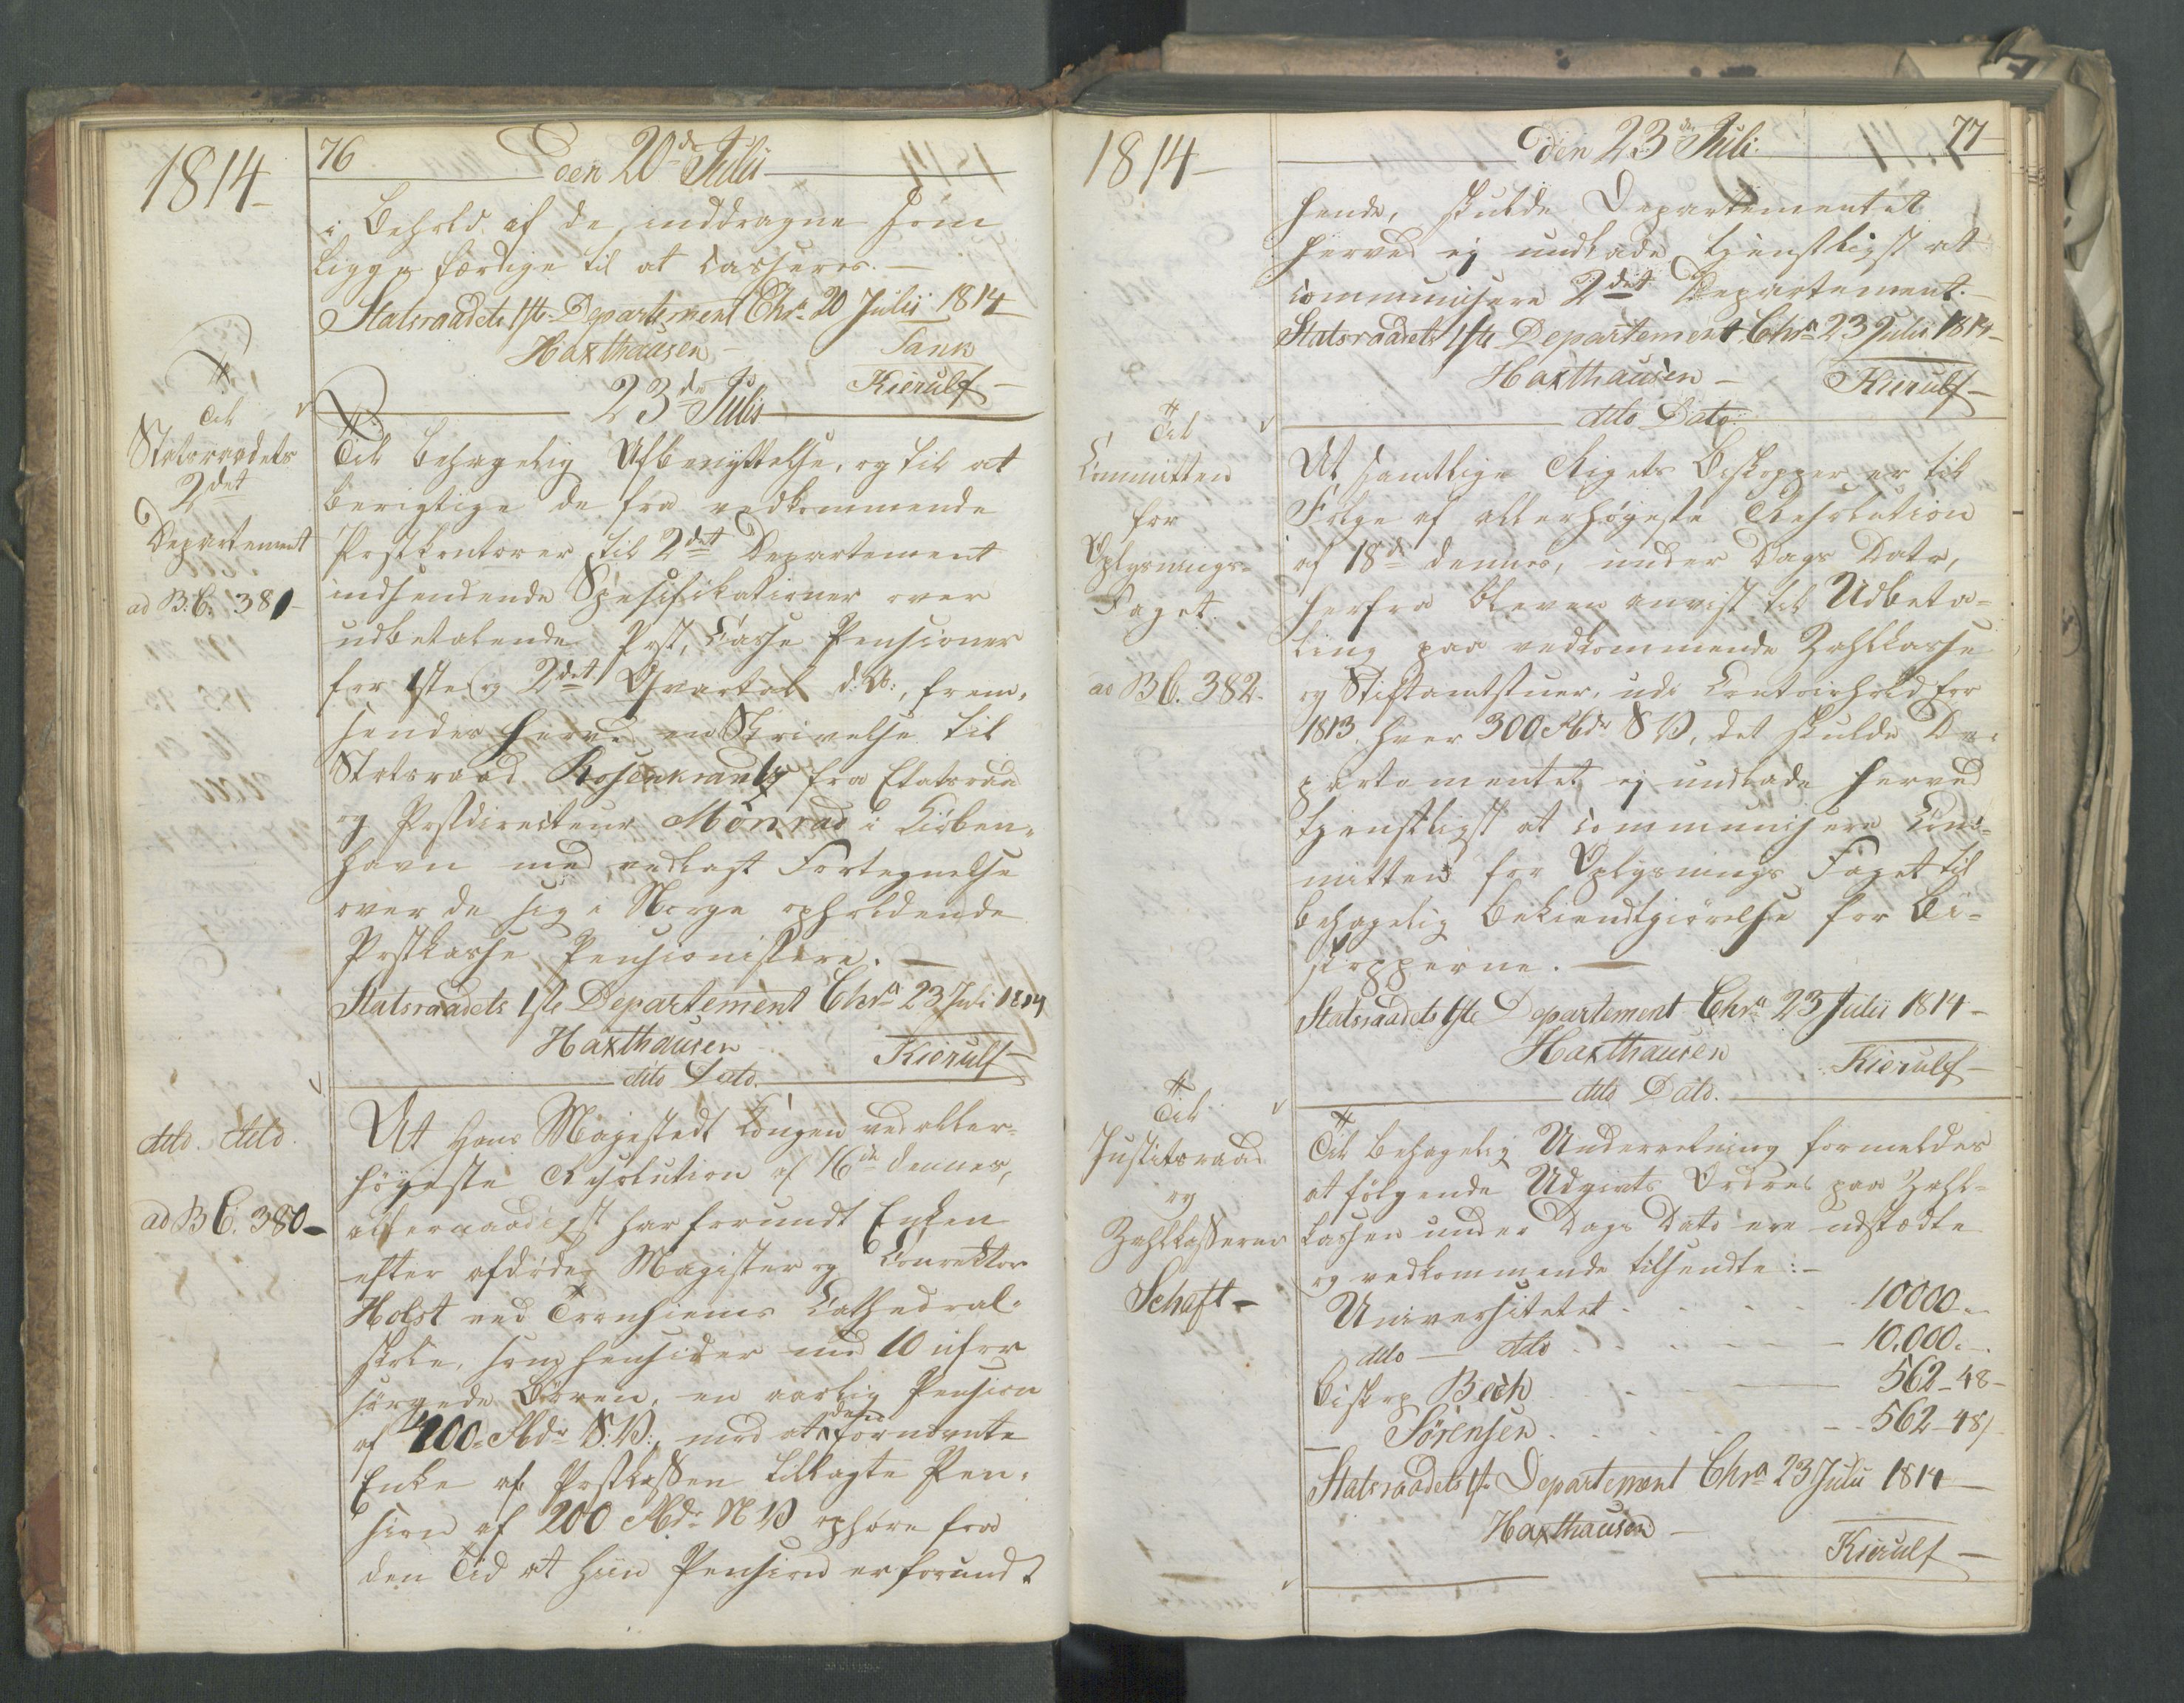 1814
76
Den 20de Julii
i Behold af de inddragne som
ligge færdige til at casseres.
Statsraadets 1ste Departement Chra 20 Julii 1814
Haxthausen
Tank
Kierulf
23de Julii
Til
Statsraadets
2det
Departement
ad B.C. 381
Til behagelig Afbenyttelse, og til at
berigtige de fra vedkommende
Postkontorer til 2det Departement
indsendende Spesifikationer over
udbetalende Post, Casse Pensioner
for 1ste og 2det Qvartal d: A:, frem-
sendes herved en Skrivelse til
Statsraad Rosenkrantz fra Etatsraad
og Postdirecteur Monrad i Kiöben-
havn med vedlagt Fortegnelse
over de sig i Norge opholdende
Postkasse Pensionister.
Statsraadets 1ste Departement Chra 23 Juli 1814
Haxthausen
Kierulf
dito Dato.
dito. dito.
ad B C. 380
At Hans Majestedt Kongen ved aller-
höyeste Resolution af 16de dennes,
allernaadigst har forundt Enken
efter afdöde Magister og Conrektor
Holst ved Tronhiems Cathedral-
skole, som hensider med 10 ufor-
sörgede Börn, en aarlig Pension
af 400 Rbdr S.V:, mod at den fornævnte
Enke af Postkassen tillagte Pen-
sion af 200 Rbdr N V ophöre fra
den Tid at hiin Pension er forundt
1814
Den 23de Juli
77
hende, skulde Departementet
herved ej undlade tjenstligst at
communisere 2det Departement.
Statsraadets 1ste Departement Chra 23 Julii 1814
Haxthausen
Kierulf
dito Dato
Til
Committen
for
Oplysnings-
Faget.
ad B C. 382.
At samtlige Rigets Biskopper er til
Fölge af allerhöyeste Resolution
af 18de dennes, under Dags Dato,
herfra bleven anvist til Udbeta-
ling paa vedkommende Zahlkasse
og Stiftamtstuer, udi Contoirhold for
1813, hver 300 Rbdr S V, det skulde De-
partementet ej undlade herved
tjenstligst at communisere Com-
mitteen for Oplysnings Faget til
behagelig Bekiendtgiörelse for Bi-
skopperne.
Statsraadets 1ste Departement Chra 23 Julii 1814
Haxthausen
Kierulf
dito Dato.
Til
Justitsraad
og
Zahlkasserer
Schaft
Til behagelig Underretning formeldes
at fölgende Udgivts Ordres paa Zahl-
kassen under Dags Dato ere udstædte
og vedkommende tilsendte:
Universitetet 10000.
dito dito 10.000.
Biskop Bech 562-48
Sörensen 562-48
Statsraadets 1ste Departement Chra 23 Julii 1814
Haxthausen
Kierulf